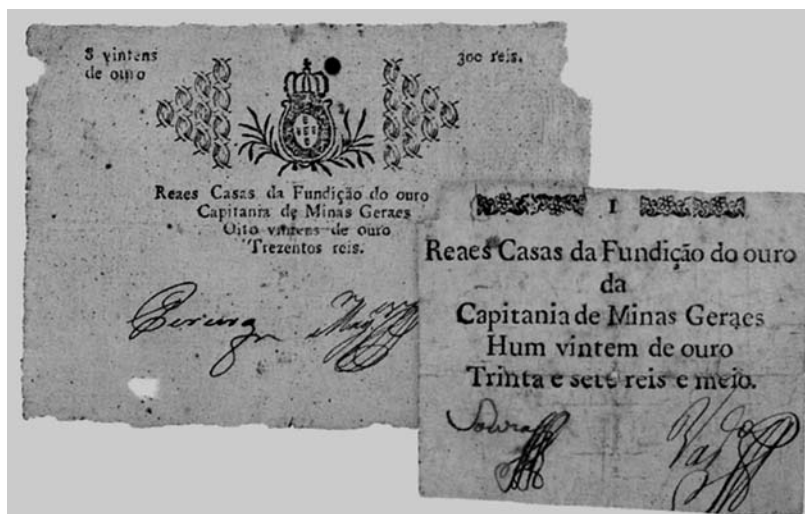 8 vintens
de ouro
300 reis.
Reaes Casas da Fundição do ouro
Capitania de Minas Geraes
Oito vintens de ouro
Trezentos reis.
1
Reaes Casas da Fundição do ouro
da
Capitania de Minas Geraes
Hum vintem de ouro
Trinta e sete reis e meio.